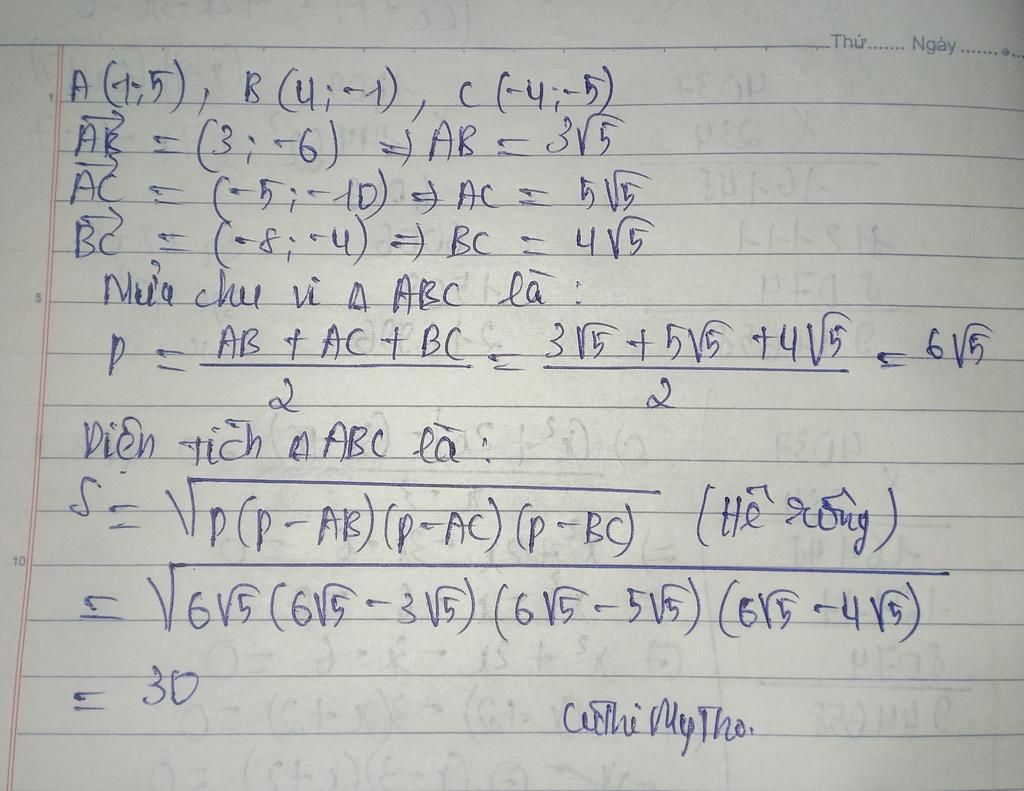 Thứ....... Ngày.......
A(1;5), B(4;-1), C(-4;-5)
AB = (3;-6) => AB = 3√5
AC = (-5;-10) => AC = 5√5
BC = (-8;-4) => BC = 4√5
Nửa chu vi Δ ABC là:
P = (AB + AC + BC)/2 = (3√5 + 5√5 + 4√5)/2 = 6√5
Diện tích Δ ABC là:
S = √(P(P - AB)(P - AC)(P - BC)) (Hê rông)
= √(6√5(6√5 - 3√5)(6√5 - 5√5)(6√5 - 4√5))
= 30
5
10